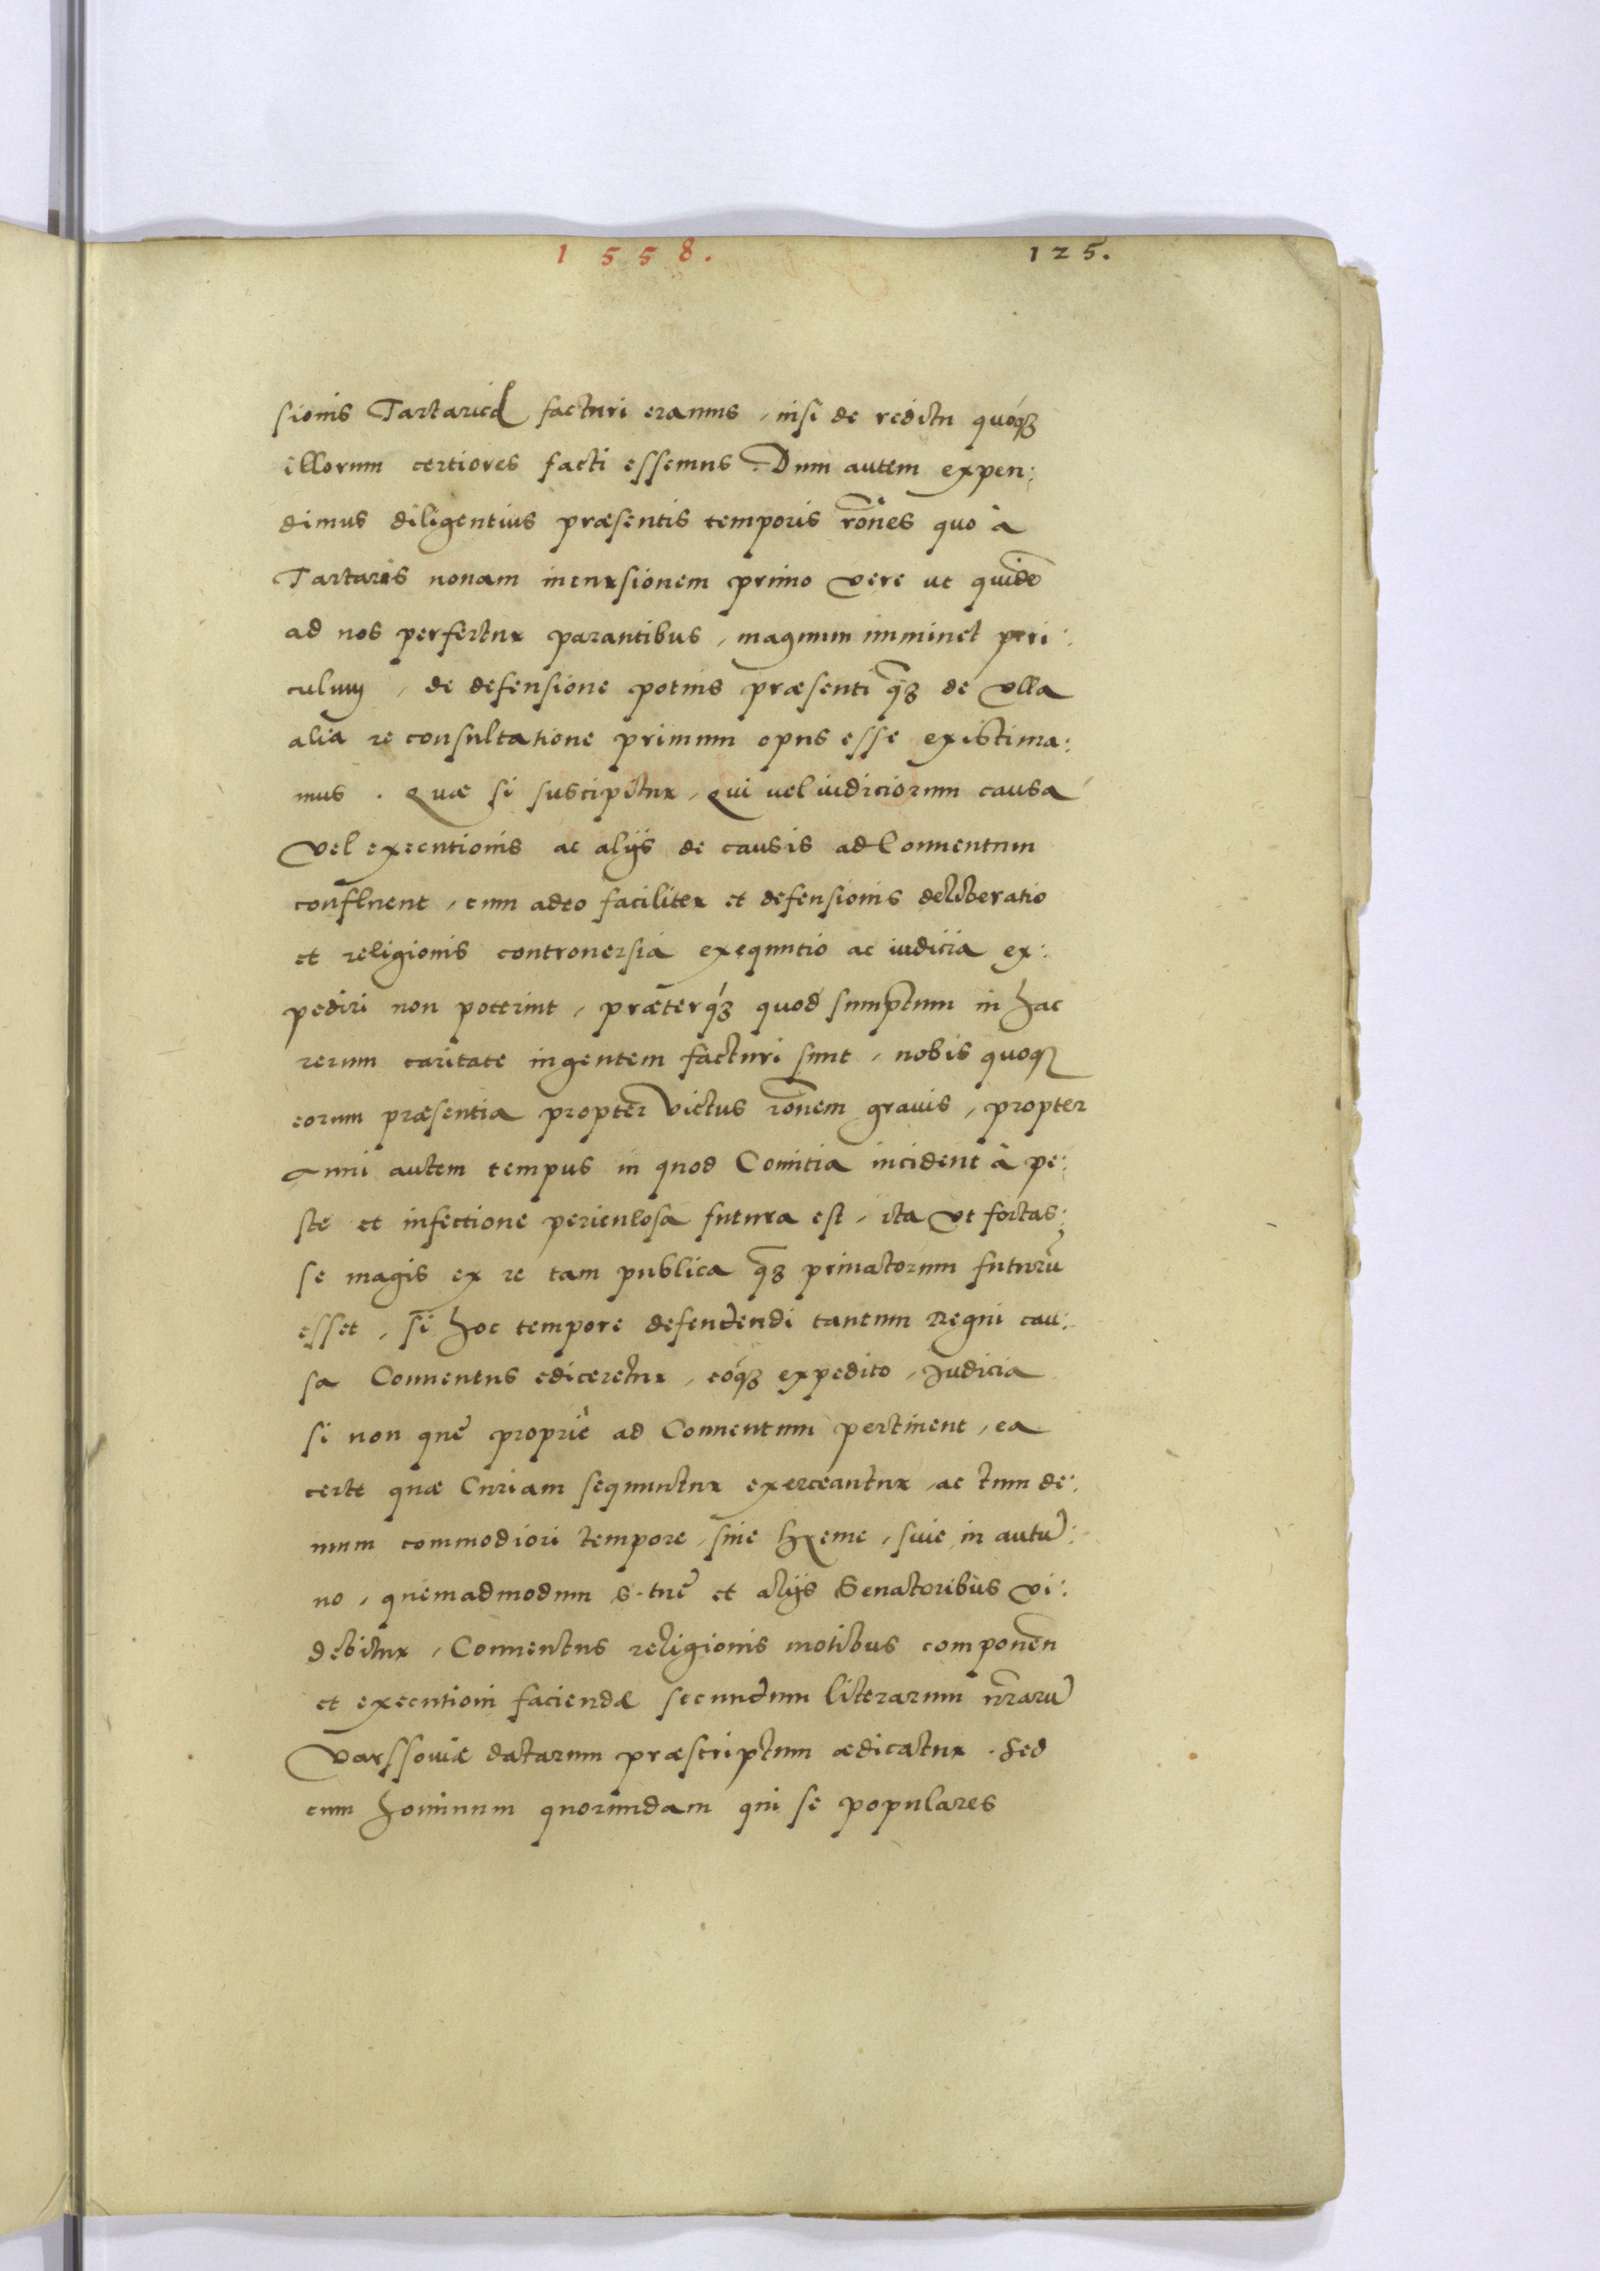 1558. 125.
sionis Tartaricæ facturi eramus, nisi de reditu quoq́ꝫ
illorum certiores facti essemus. Dum autem expen:
dimus diligentius præsentis temporis rõnes quo à
Tartaris nouam incursionem primo vere ut quidẽ
ad nos perfertur parantibus, magnum imminet peri:
culum, de defensione potius præsenti q̃ꝫ de vlla
alia re consultatione primum opus esse existima:
mus. Quæ si suscipitur, qui uel iudiciorum causa
vel executionis ac alijs de causis ad Conuentum
confluent, cum adeo faciliter et defensionis deliberatio
et religionis controuersia exequutio ac iudicia ex:
pediri non poterint, præterq́ꝫ quod sumptum in hac
rerum caritate ingentem facturi sunt, nobis quoqꝫ
eorum præsentia propter victus rõnem grauis, propter
anni autem tempus in quod Comitia incident à pe:
ste et infectione periculosa futura est, ita vt fortas:
se magis ex re tam publica q̃ꝫ priuatorum futurũ
esset, si hoc tempore defendendi tantum Regni cau:
sa Conuentus ediceretur, eoq́ꝫ expedito, Judicia
si non quę proprie ad Conuentum pertinent, ea
certe quæ Curiam sequuntur exerceantur, ac tum de:
mum commodiori tempore, siue hyeme, siue in autũ:
no, quemadmodum S. tuę et alijs Senatoribus vi:
debitur, Conuentus religionis motibus componeñ
et executioni faciendæ secundum literarum nr̃arũ
Varssouiæ datarum præscriptum ædicatur. Sed
cum hominum quorundam qui se populares